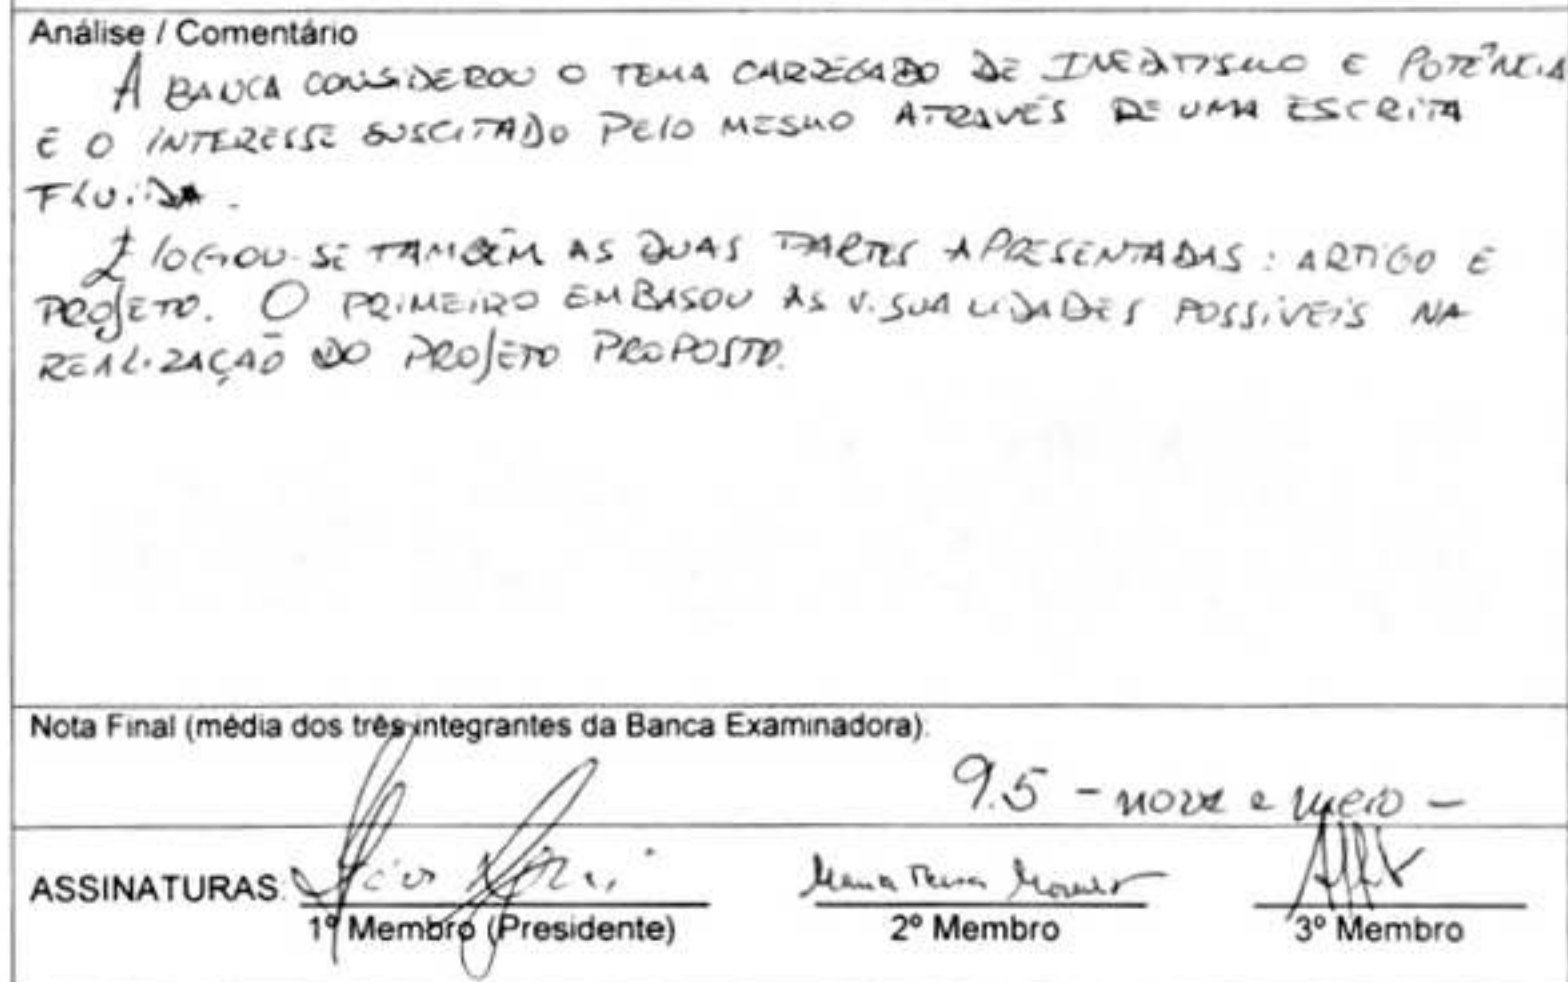 Análise / Comentário
A BANCA CONSIDEROU O TEMA CARREGADO DE INEDITISMO E POTÊNCIA
E O INTERESSE SUSCITADO PELO MESMO ATRAVÉS DE UMA ESCRITA
FLUIDA.
ELOGIOU-SE TAMBÉM AS DUAS PARTES APRESENTADAS: ARTIGO E
PROJETO. O PRIMEIRO EMBASOU AS VISUALIDADES POSSÍVEIS NA
REALIZAÇÃO DO PROJETO PROPOSTO.
Nota Final (média dos três integrantes da Banca Examinadora):
9.5 - nove e meio -
ASSINATURAS: Maria
1º Membro (Presidente) 2º Membro 3º Membro